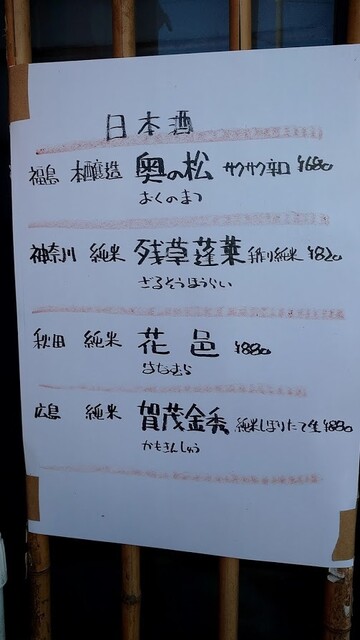 日本酒
福島 本醸造 奥の松 サクサク辛口 ¥680
おくのまつ
神奈川 純米 残草蓬莱 手作り純米 ¥820
ざるそうほうらい
秋田 純米 花邑 ¥880
はなむら
広島 純米 賀茂金秀 純米しぼりたて生 ¥880
かもきんしゅう